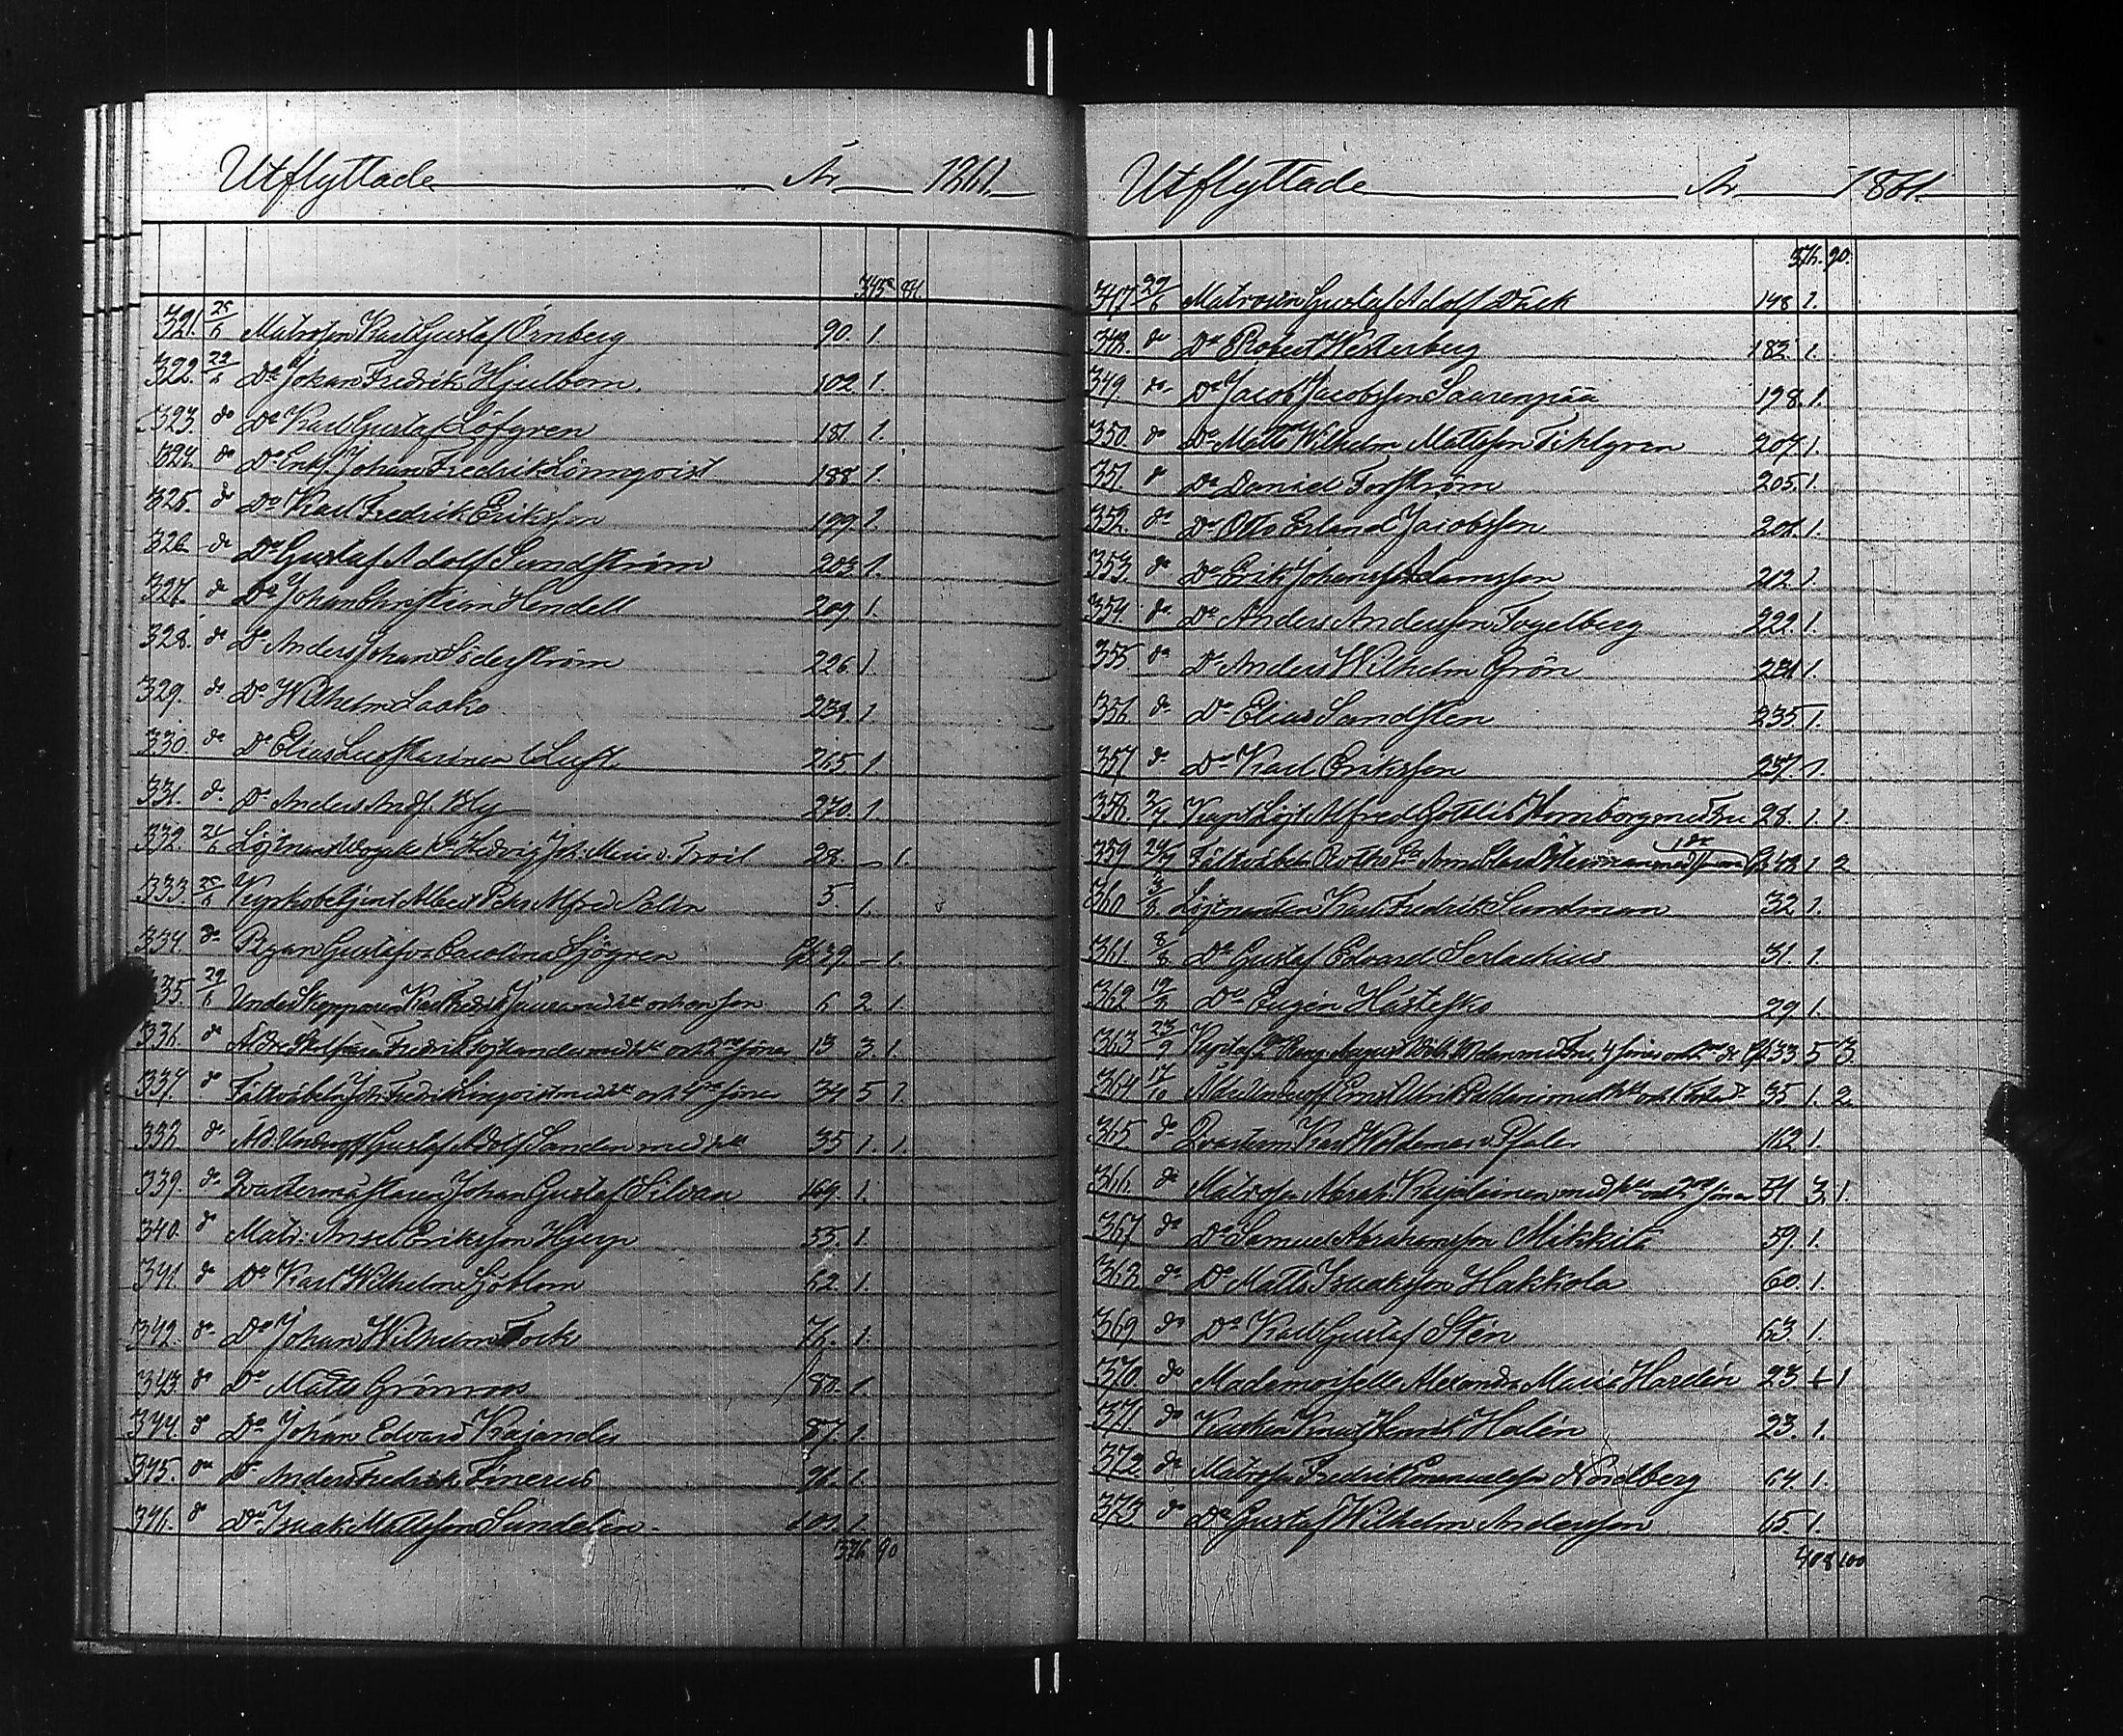 Utflyttade År 1861.
345 84.
321. 25/6 Matrosen Karl Gustaf Örnberg 90. 1.
322. 22/6 Do Johan Fredrik Hjulbom. 102. 1.
323. do Do Karl Gustaf Löfgren 181. 1.
324. do Do Enkl. Johan Fredrik Lönnqvist 188. 1.
325. do Do Karl Fredrik Eriksson 199. 1.
326 do Do Gustaf Adolf Sundström 203. 1.
327. do Do Johan Christian Hendell 209. 1.
328. do Do Anders Johan Söderström 226. 1.
329. do Do Wilhelm Laako 239. 1.
330. do Do Elias Luft 265. 1.
331. do Do Anders And. f. Bly 270. 1.
332. 26/6 Löjtnant Maria v. Troil 28. — 1.
333. 25/6 Albert Alfred 5. 1.
334. do Pigan Carolina Sjögren 639. — 1.
335. 29/6 Under Skepparen Karl Fredrik med hu och en son 6 2 1.
336. do Fredrik med hu och söner 13 3. 1.
337. do Fältväbeln Joh. Fredrik Lingvist med hu och 4 söner 34 5 1.
338. do Gustaf Adolf Sanden med hu 35 1. 1.
339. do Qvartermästaren Johan Gustaf Silvan 169. 1.
340. do Matr: Ansel Eriksson Hjerp 55. 1.
341. do Do Karl Wilhelm Sjöblom 62. 1.
342. do Do Johan Wilhelm Fock 76. 1.
343. do Do Matts Grönroos 80. 1.
344. do Do Johan Edvard Kajander 87. 1.
345. do Do Anders Fredrik Finerus 96. 1.
346. do Do Isaak Mattsson Sundelin. 101. 1.
376. 90
Utflyttade År 1861.
376. 90.
347 29/6 Matrosen Gustaf Adolf Dück 148 1.
348. do Do Robert Westerberg 182. 1.
349 do Do Jacob Jacobsson Saarenpää 198. 1.
350. do Do Matts Wilhelm Mattsson Fihlgren 207. 1.
351 do Do Daniel Forsström 205. 1.
352. do Do Otto Erland Jacobsson 208. 1.
353. do Do Erik Johansson Adamsson 212. 1.
354. do Do Anders Andersson Fogelberg 222. 1.
355 do Do Anders Wilhelm Grön 231. 1.
356 do Do Elias Sandsten 235 1.
357 do Do Karl Eriksson 237. 1.
358. 2/7 Kapt. Löjt. Alfred Gottlib Hornborg med Fru 28. 1. 1.
359 24/7 Fältväbeln Anna 1. 2.
360 3/8 Löjtnanten Karl Fredrik Sundman 32 1.
361. 8/8 Do Gustaf Edvard Serlachius 31. 1.
362 19/8 Do Eugén Hästesko 29 1.
363 23/9 August med Fru, 4 söner 633 5 3.
364 17/10 Ernst Ulrik med hu och 1 35. 1. 2.
365 do Qvarterm. Karl Woldemar v. Pfaler 162. 1.
366. do Matrosen Abrah. med hu och 2 söner 54 3. 1.
367 do Do Samuel Abrahamsson Mikkilä 59. 1.
368 do Do Matts Isaaksson Hakkola 60. 1.
369 do Do Karl Gustaf Stén 63 1.
370 do Mademoiselle Alexandra Maria Hardén 23 1
371 do Knut Henrik Holén 23. 1.
372 do Matrosen Fredrik Emanuelsson Nordberg 64. 1.
373 do Do Gustaf Wilhelm Andersson 65. 1.
408 100